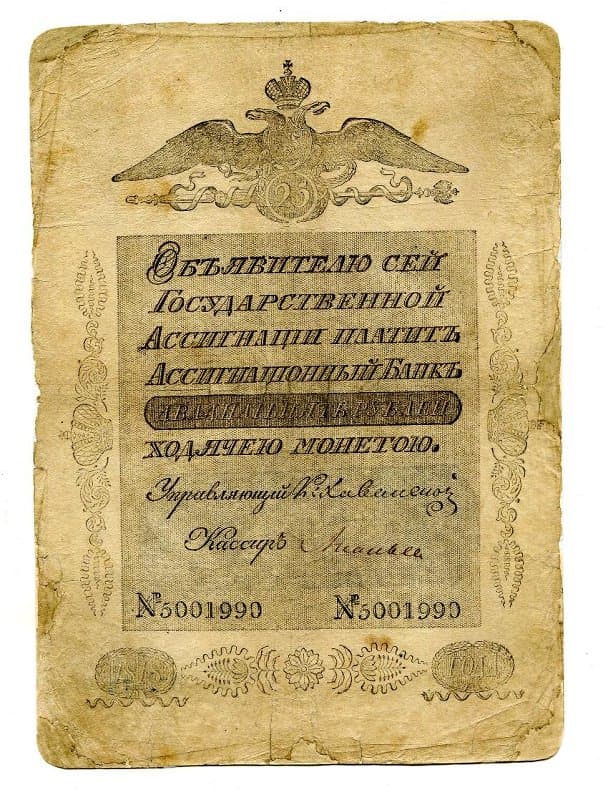 25
Объявителю сей
Государственной
Ассигнаціи платитъ
Ассигнаціонный Банкъ
двадцать пять рублей
ходячею монетою.
Управляющій Кн.
Кассиръ
№5001990 №5001990
1818 года